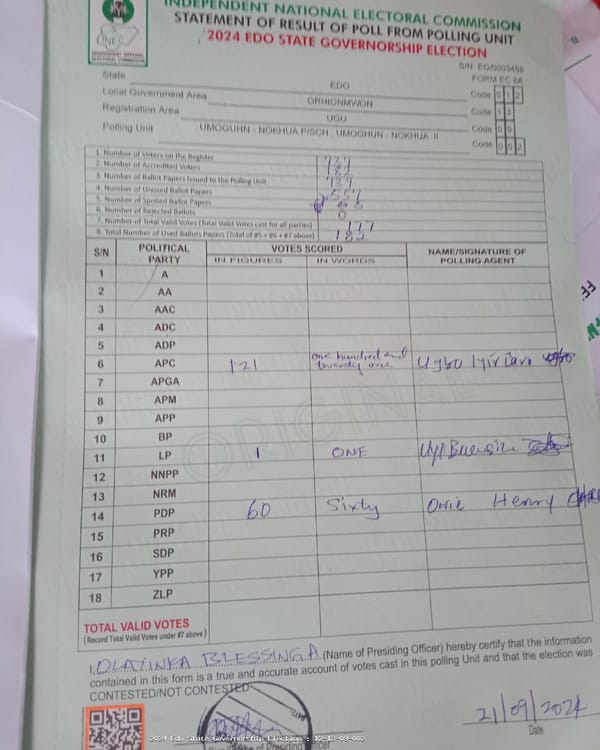 INDEPENDENT NATIONAL ELECTORAL COMMISSION
STATEMENT OF RESULT OF POLL FROM POLLING UNIT
2024 EDO STATE GOVERNORSHIP ELECTION
S/N: EG/0003459
FORM EC 8A
State EDO Code 0 1 2
Local Government Area ORHIONMWON Code 1 3
Registration Area UGU Code 0 9
Polling Unit UMOGUHN - NOKHUA P/SCH , UMOGHUN - NOKHUA II Code 0 0 2
1. Number of Voters on the Register
2. Number of Accredited Voters
3. Number of Ballot Papers Issued to the Polling Unit
4. Number of Unused Ballot Papers
5. Number of Spoiled Ballot Papers
6. Number of Rejected Ballots
7. Number of Total Valid Votes (Total Valid Votes cast for all parties)
8. Total Number of Used Ballots Papers (Total of #5 + #6 + #7 above)
S/N POLITICAL PARTY VOTES SCORED NAME/SIGNATURE OF POLLING AGENT
IN FIGURES IN WORDS
1 A
2 AA
3 AAC
4 ADC
5 ADP
6 APC 121 one hundred and twenty one
7 APGA
8 APM
9 APP
10 BP
11 LP 1 ONE
12 NNPP
13 NRM
14 PDP 60 Sixty Owie Henry
15 PRP
16 SDP
17 YPP
18 ZLP
ORIGINAL
TOTAL VALID VOTES
(Record Total Valid Votes under #7 above)
I, OLAYINKA BLESSING A (Name of Presiding Officer) hereby certify that the information
contained in this form is a true and accurate account of votes cast in this polling Unit and that the election was
CONTESTED/NOT CONTESTED
21/09/2024
Date
2024 Edo State Governorship Election : 12-13-09-002
of Presiding Officer